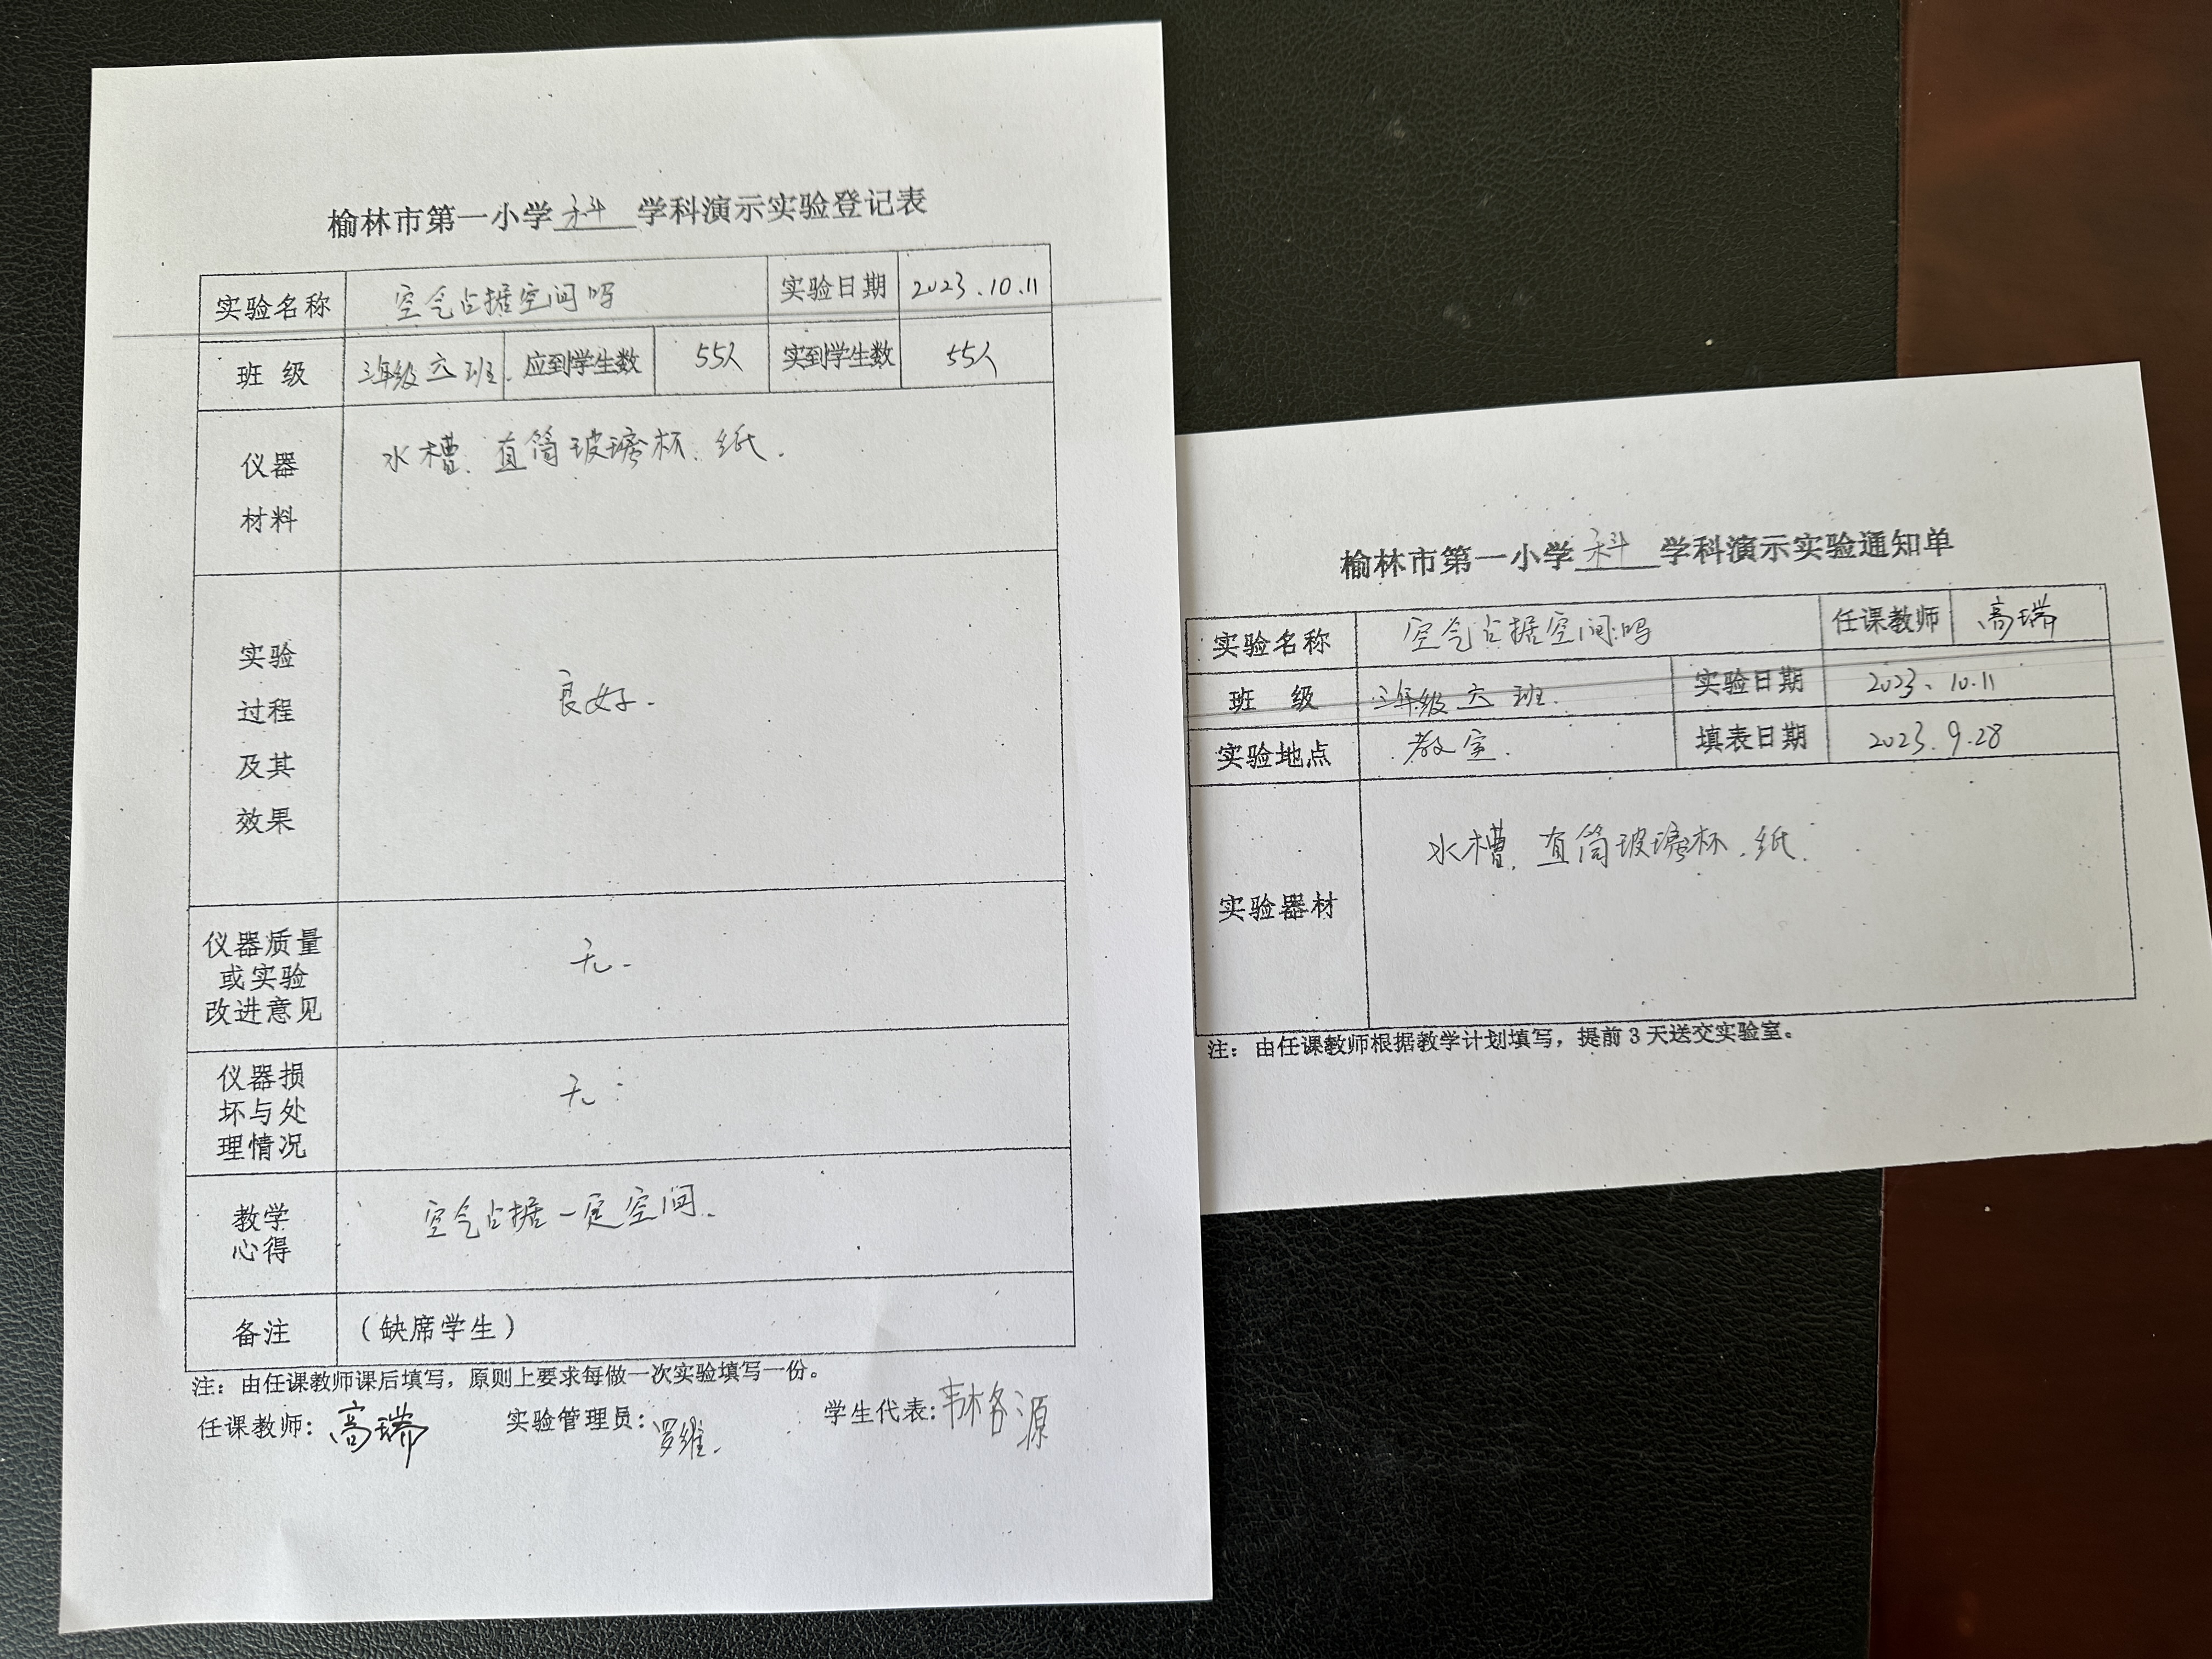 榆林市第一小学科学科演示实验登记表
实验名称 空气占据空间吗 实验日期 2023.10.11
班 级 三年级六班. 应到学生数 55人 实到学生数 55人
仪器
材料
水槽、直筒玻璃杯、纸.
实验
过程
及其
效果
良好.
仪器质量
或实验
改进意见
无.
仪器损
坏与处
理情况
无.
教学
心得
空气占据一定空间.
备注 （缺席学生）
注：由任课教师课后填写，原则上要求每做一次实验填写一份。
任课教师：高瑞 实验管理员：罗维. 学生代表：
榆林市第一小学科学科演示实验通知单
实验名称 空气占据空间吗 任课教师 高瑞
班 级 三年级六班. 实验日期 2023.10.11
实验地点 教室. 填表日期 2023.9.28
实验器材 水槽、直筒玻璃杯、纸.
注：由任课教师根据教学计划填写，提前3天送交实验室。